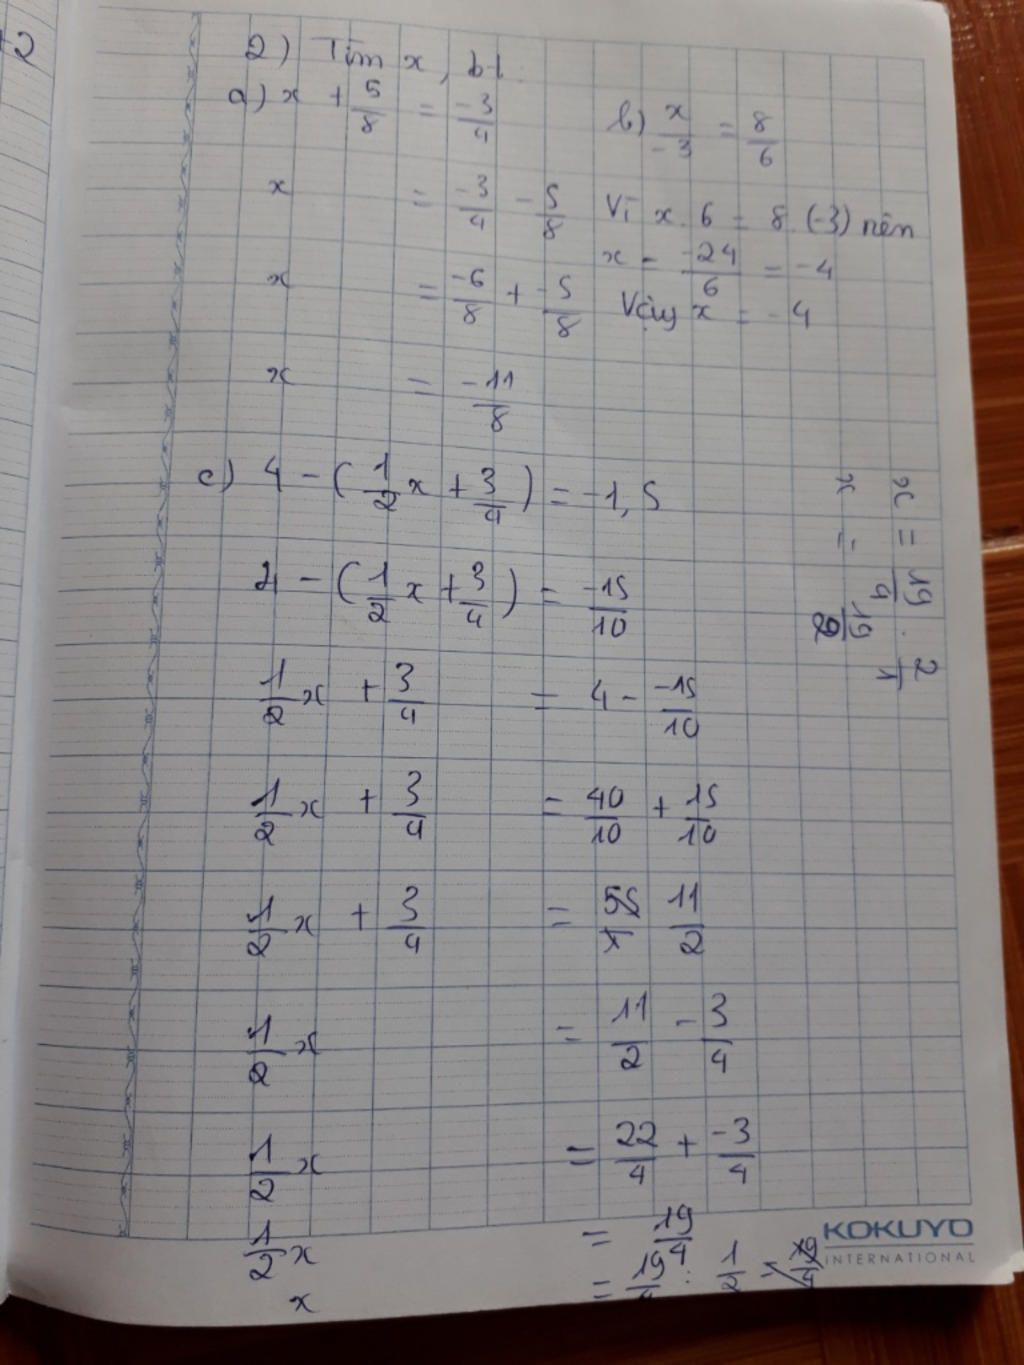 2
2) Tìm x, bt:
a) x + 5/8 = -3/4
x = -3/4 - 5/8
x = -6/8 + -5/8
x = -11/8
b) x/-3 = 8/6
Vì x . 6 = 8 . (-3) nên
x = -24/6 = -4
Vậy x = -4
c) 4 - (1/2 x + 3/4) = -1,5
4 - (1/2 x + 3/4) = -15/10
1/2 x + 3/4 = 4 - -15/10
1/2 x + 3/4 = 40/10 + 15/10
1/2 x + 3/4 = 11/2
1/2 x = 11/2 - 3/4
1/2 x = 22/4 + -3/4
1/2 x = 19/4
x = 19/4 : 1/2 =
x = 19/4 . 2/1
x = 19/2
KOKUYO
INTERNATIONAL